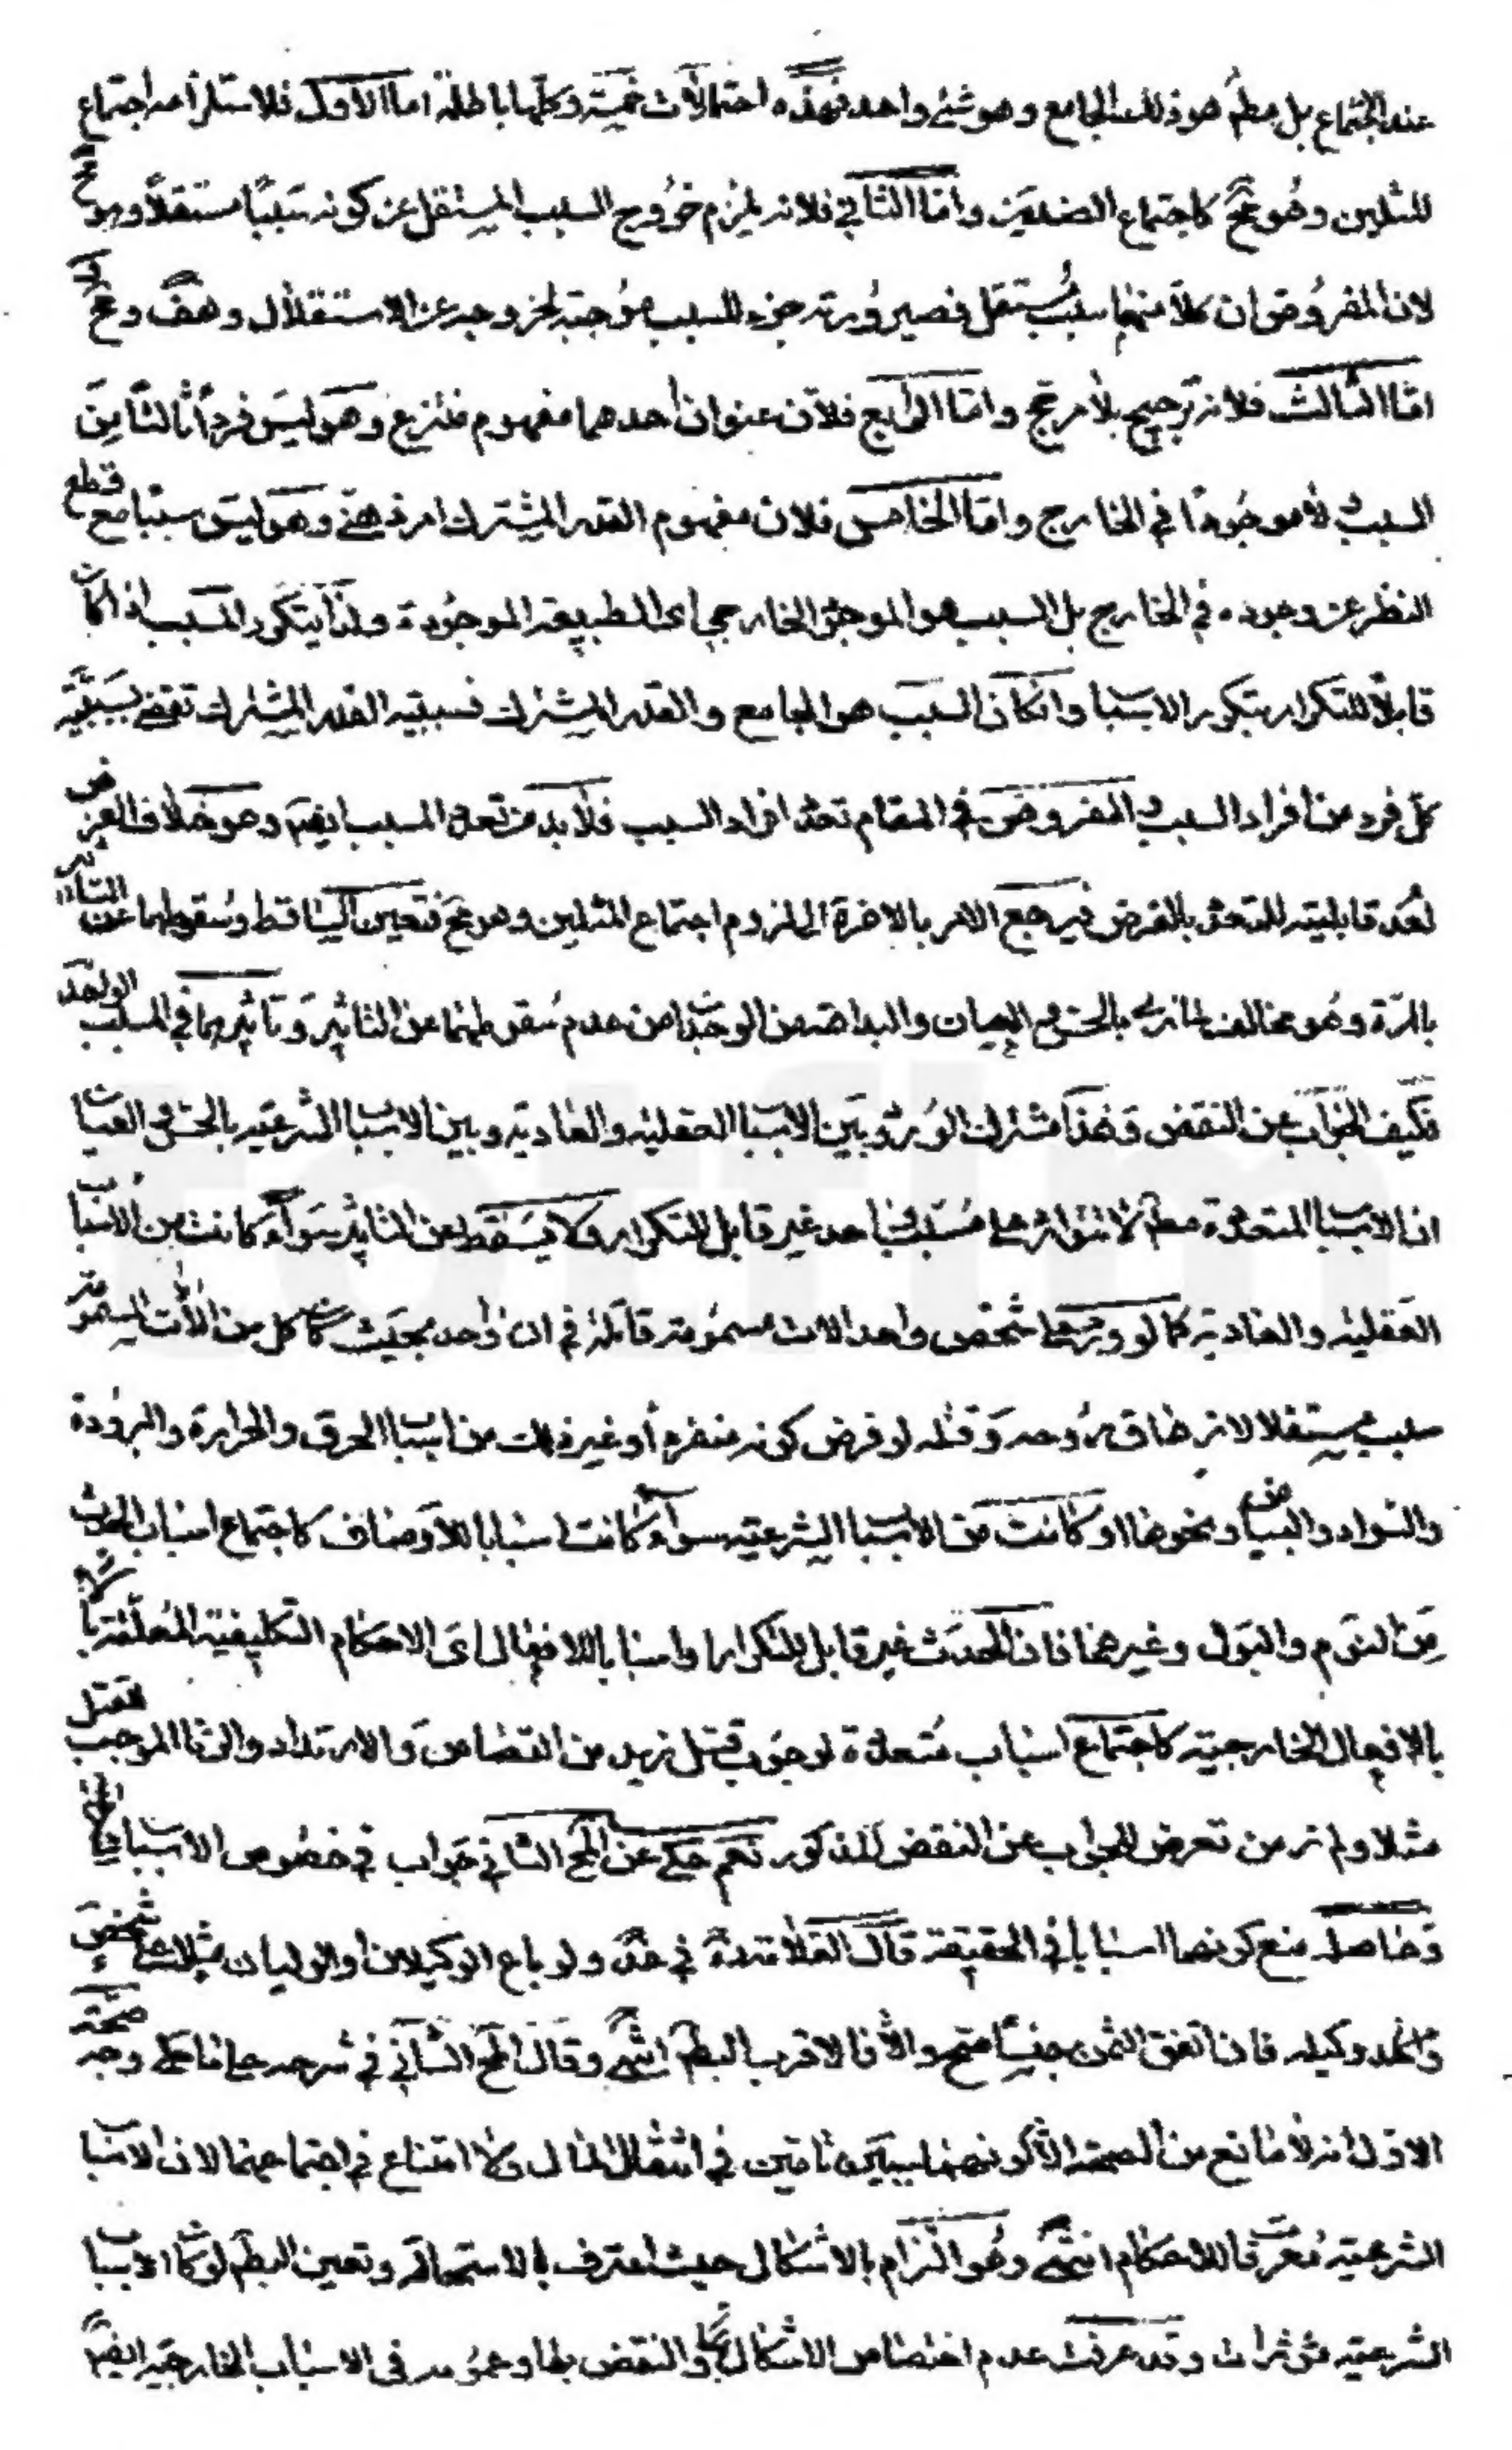 عند الاجتماع بل مطم هو ذلك الجامع وهو شئ واحد فهذه احتمالات خمسة وكلها باطلة اما الاول فلاستلزامه اجتماع
المثلين وهو مح كاجتماع الضدين واما الثاني فلانه يلزم خروج السبب المستقل عن كونه سببا مستقلا وهو مح
لان المفروض ان كلا منهما سبب مستقل فصيرورته جزء للسبب موجبة لخروجه عن الاستقلال وهف ومح
اما الثالث فلانه ترجيح بلا مرجح واما الرابع فلان عنوان احدهما مفهوم منتزع وهو ليس فردا ثالثا من
السبب ولا موجودا في الخارج واما الخامس فلان مفهوم القدر المشترك امر ذهني وهو ليس سببا مع قطع
النظر عن وجوده في الخارج بل السبب هو الموجود الخارجي اى الطبيعة الموجودة ولذا يتكرر المسبب اذا كان
قابلا للتكرار بتكرر الاسباب وان كان السبب هو الجامع والقدر المشترك فسببية القدر المشترك تقتضى سببية
كل فرد من افراد السبب والمفروض في المقام تعدد افراد السبب فلا بد من تعدد المسبب ايضم وهو خلاف الفرض
لعدم قابليته للتعدد بالفرض فيرجع الامر بالاخرة الى لزوم اجتماع المثلين وهو مح فتعين التساقط وسقوطهما عن التاثير
بالمرة وهو مخالف لما نرى بالحس والعيان والبداهة من الوجدان من عدم سقوطهما عن التاثير وتاثيرهما في المسبب الواحد
فكيف الجواب عن النقض وهذا مشترك الورود بين الاسباب العقلية والعادية وبين الاسباب الشرعية بالحس والعيان
ان الاسباب المتعددة مطم لا تتوارد على مسبب واحد غير قابل للتكرار ولا يسقط عن التاثير سواء كانت من الاسباب
العقلية والعادية كما لو ورد على شخص واحد الات مسمومة قاتلة في ان واحد بحيث كان كل من الالات المسمومة
سبب مستقلا لازهاق روحه وقتله لو فرض كونه منفردا وغير ذلك من اسباب الحرق والحرارة والبرودة
والسواد والبياض ونحوها او كانت من الاسباب الشرعية سواء كانت اسبابا للاوصاف كاجتماع اسباب الحدث
من النوم والبول وغيرهما فان الحدث غير قابل للتكرار او اسبابا للافعال اى الاحكام التكليفية المعلقة
بالافعال الخارجية كاجتماع اسباب متعددة لوجوب قتل زيد من القصاص والارتداد والزنا الموجب للقتل
مثلا ولم نر من تعرض للجواب عن النقض المذكور نعم حكى عن المح الثاني جواب في خصوص الاسباب
وحاصله منع كونها اسبابا في الحقيقة قال العلامة في عد ولو باع الوكيلان او الوليان مثلا على شخص
وكيله فان اتفق الثمن جنسا صح والا فالاقرب البطم انتهى وقال المح الثاني في شرحه على ما حكى وجه صحة
الاول انه لا مانع من الصحة الا كونهما سببين تامين في انتقال المال ولا امتناع في اجتماعهما لان الاسباب
الشرعية معرفات للاحكام انتهى وهو التزام بالاشكال حيث اعترف بالاستحالة وتعين البطم لو كان الاسباب
الشرعية مؤثرات وقد عرفت عدم اختصاص الاشكال والنقض بها وعمومه في الاسباب الخارجية ايضم